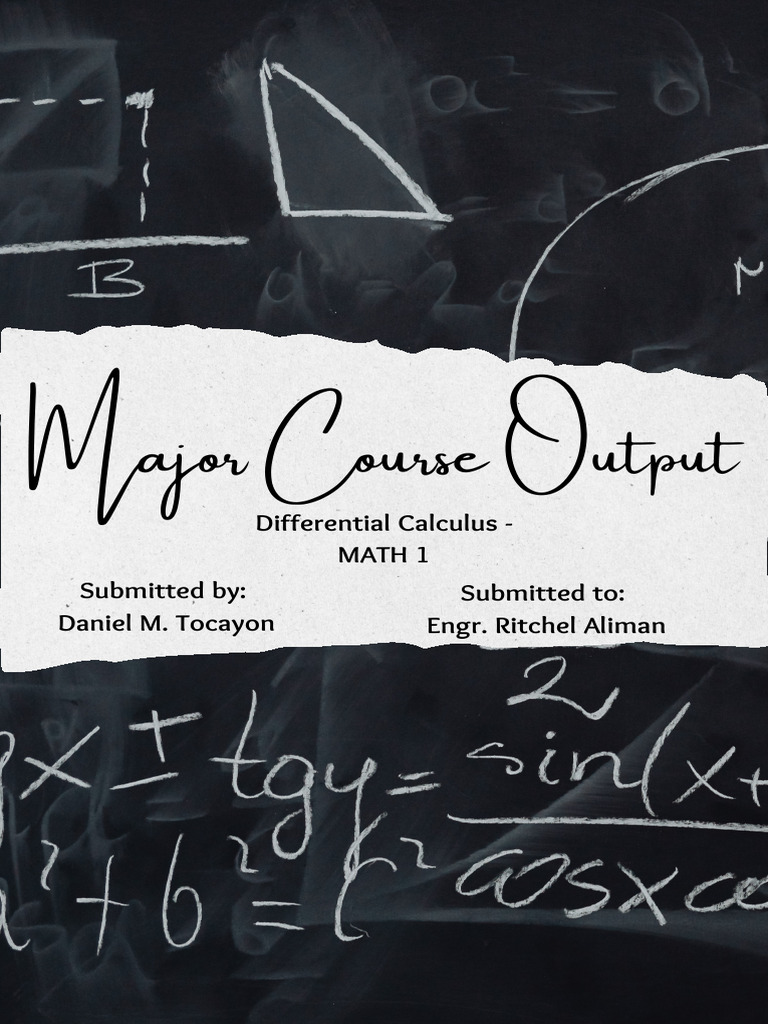 B
r
Major Course Output
Differential Calculus -
MATH 1
Submitted by:
Daniel M. Tocayon
Submitted to:
Engr. Ritchel Aliman
2
gx ± tgy = sin(x+
cosx cos
a² + b² = c²